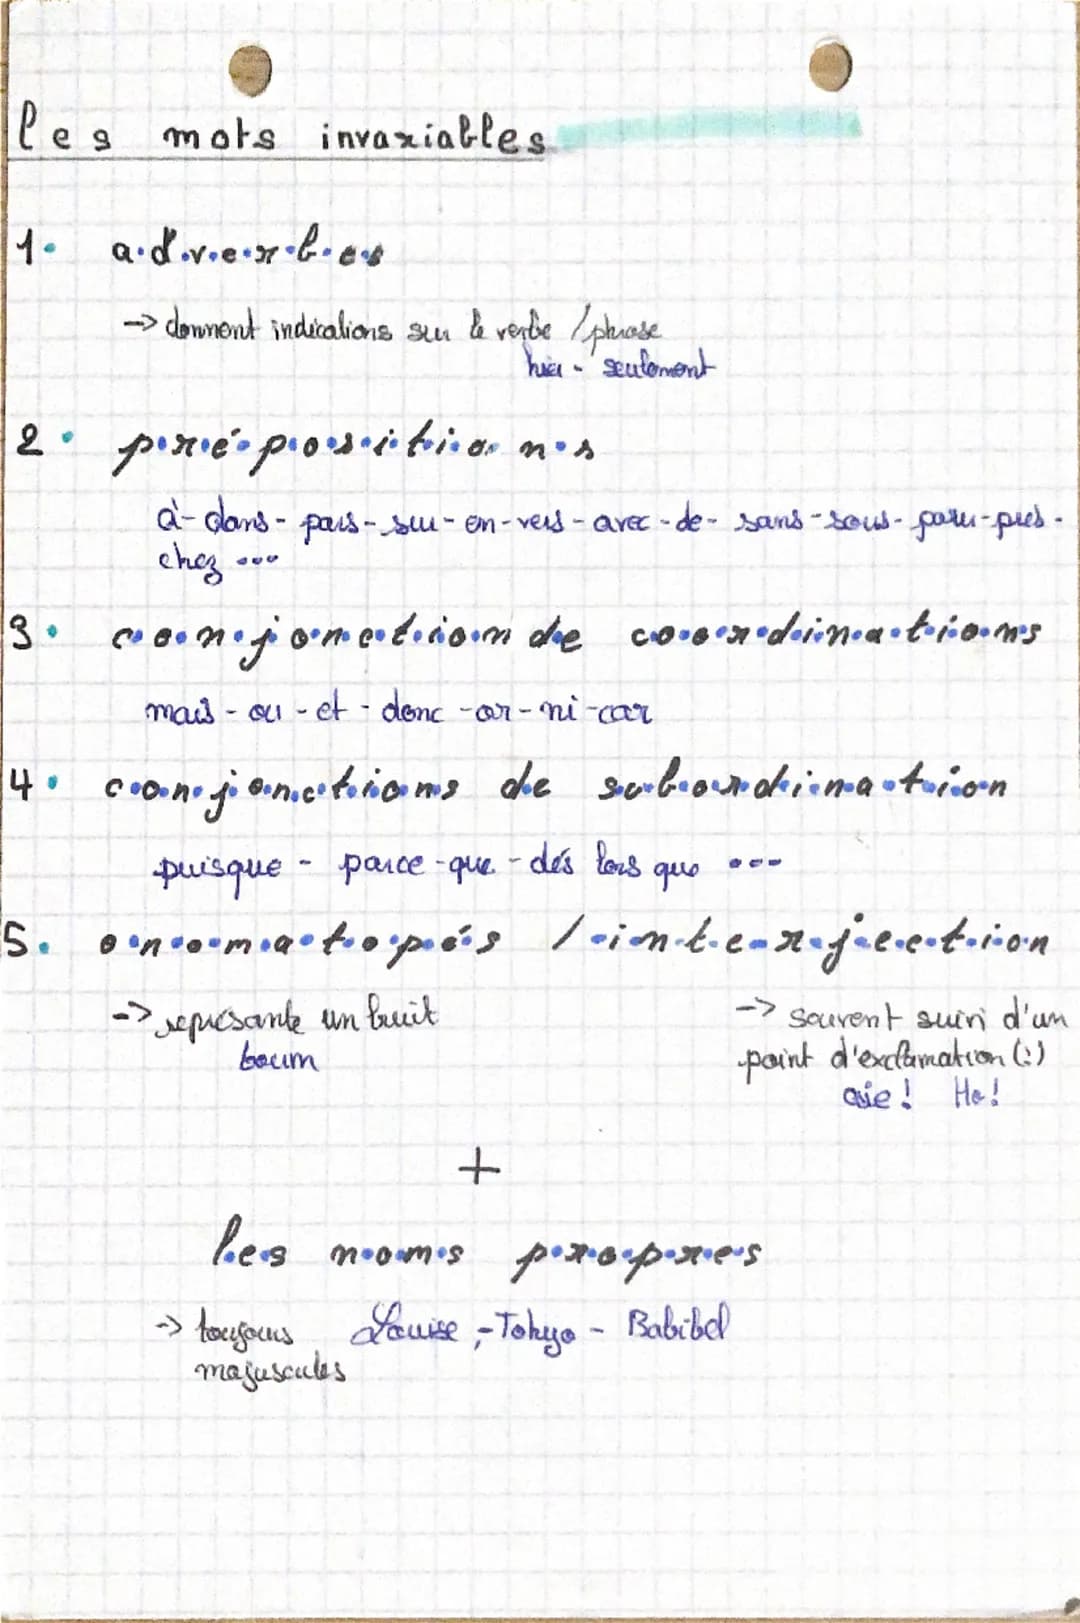 les mots invariables
1. adverbes
-> donnent indications sur le verbe / phrase
hier - seulement
2. prépositions
à - dans - pars - sur - en - vers - avec - de - sans - sous - pour - près -
chez ...
3. conjonction de coordinations
mais - ou - et - donc - or - ni - car
4. conjonctions de subordination
puisque - parce-que - dés lors que ...
5. onomatopés / interjection
-> représante un bruit -> souvent suivi d'un
boum point d'exclamation (!)
aie ! Ho !
+
les noms propres
-> toujours Louise - Tokyo - Babibel
majuscules